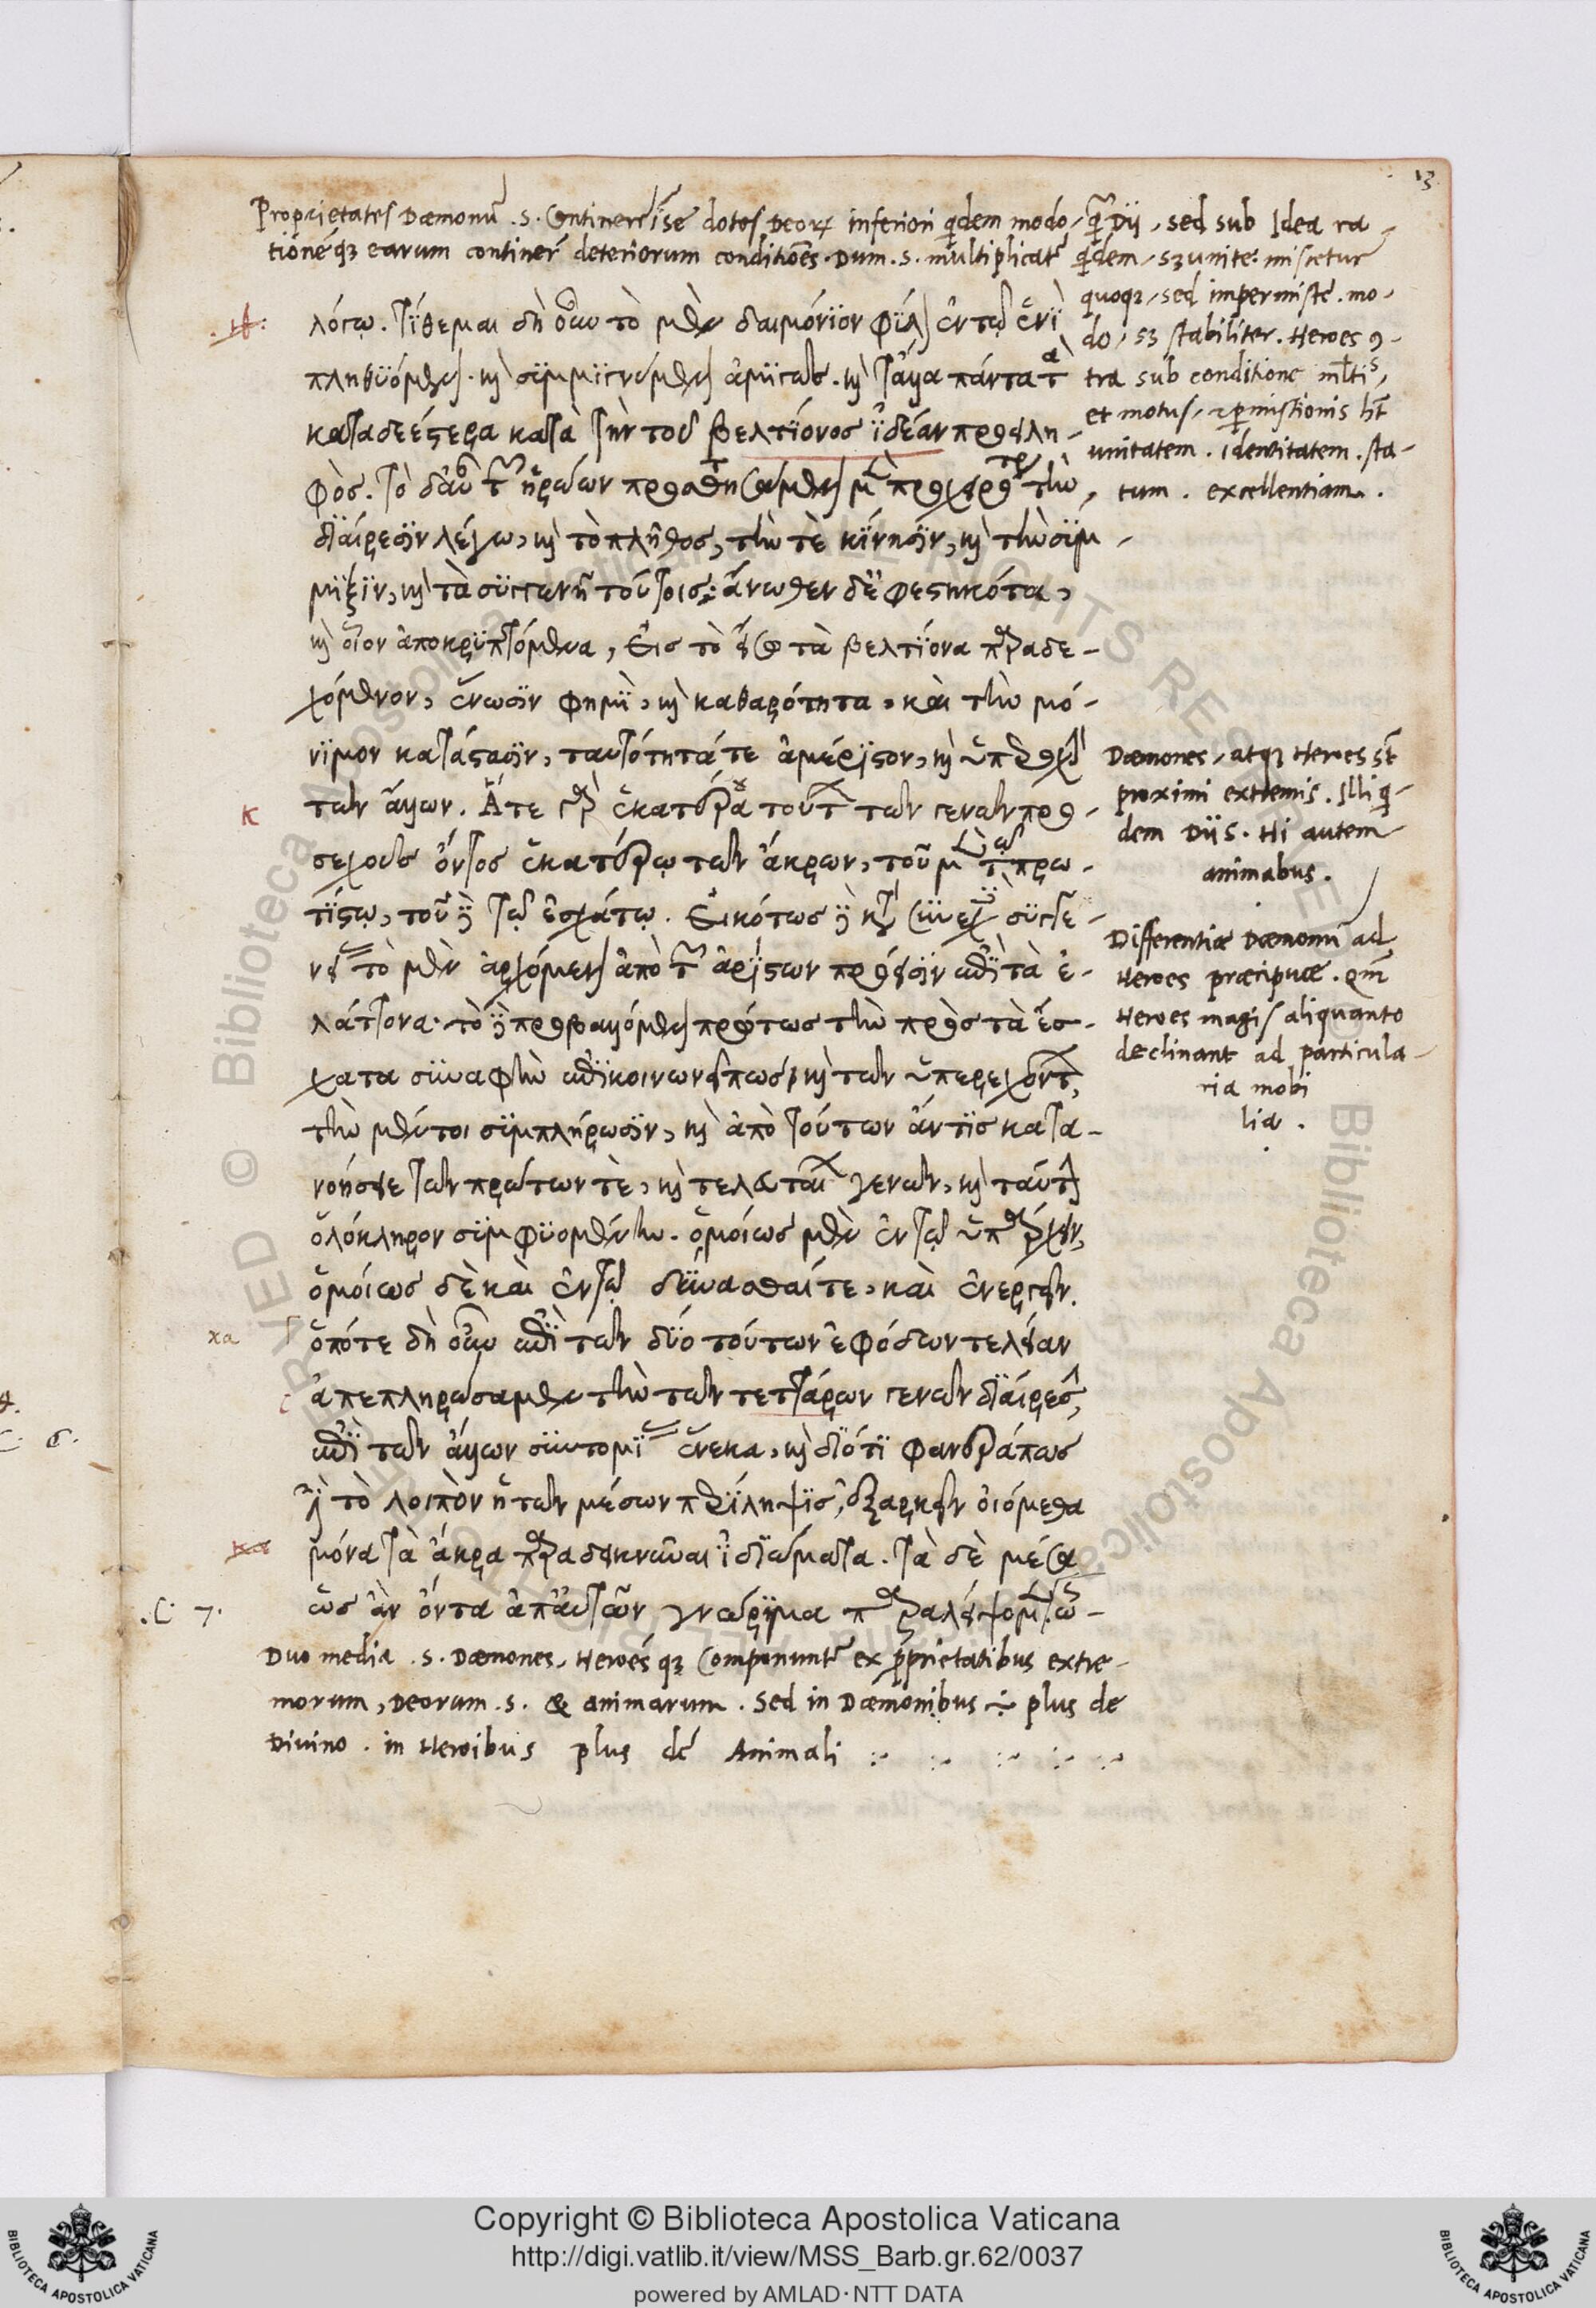 13
Proprietates Dæmonū .s. Continere īse dotes Deorꝝ inferiori qdem modo, q̄ Dii, sed sub Idea ra-
tionéqꝫ earum continer̄ deteriorum conditiōēs. Dum .s. multiplicat̄ qdem, sꝫ unite: miscetur
quoqꝫ, sed impermiste. mo-
do, sꝫ stabiliter. Heroes ꝯ-
tra sub conditione mlti^s,
et motus, ꝑmistionis hn̄t
unitatem. identitatem. sta-
tum. excellentiam.
λόγῳ. Τίθεμαι δὴ οὖν τὸ μὲν δαιμόνιον φῦλον ἐν τῷ ἑνὶ
πληθυόμενον. καὶ συμμιγνύμενον ἀμιγῶς. καὶ τἄλλα πάντα τὰ
καταδεέστερα κατὰ τὴν τοῦ βελτίονος ἰδέαν προσειλη-
φός. Τὸ δ' αὖ τῶν ἡρώων
διαίρεσιν λέγω, καὶ τὸ πλῆθος, τὴν τὲ κίνησιν, καὶ τὴν σύμ-
μιξιν, καὶ τὰ συγγενῆ τούτοις: ἄνωθεν δ' ἐφεστηκότα,
καὶ οἷον ἀποκρυπτόμενα, εἰς τὸ εἴσω τὰ βελτίονα παραδε-
χόμενον, ἕνωσιν φημὶ, καὶ καθαρότητα, καὶ τὴν μό-
νιμον κατάστασιν, ταυτότητά τε ἀμέριστον, καὶ ὑπεροχὴν
τῶν ἄλλων. Ἅτε γὰρ ἑκατέρου τούτων τῶν γενῶν προ-
σεχοῦς ὄντος ἑκατέρῳ τῶν ἄκρων, τοῦ μὲν τῷ πρω-
τίστῳ, τοῦ δὲ τῷ ἐσχάτῳ. Εἰκότως δὲ κατὰ συνεχῆ συγγέ-
νειαν τὸ μὲν ἀρχόμενον ἀπὸ τῶν ἀρίστων πρόεισιν ἐπὶ τὰ ἐ-
λάττονα. τὸ δὲ προβαλλόμενον πρώτως τὴν πρὸς τὰ ἔσ-
χατα συναφὴν ἐπικοινωνεῖ πως καὶ τῶν ὑπερεχόντων,
τὴν μέντοι συμπλήρωσιν, καὶ ἀπὸ τούτων ἄν τις κατα-
νοήσειε τῶν πρώτων τὲ, καὶ τελευταίων γενῶν, καὶ ταύτην
ὁλόκληρον συμφυομένην. ὁμοίως μὲν ἐν τῷ ὑπάρχειν,
ὁμοίως δὲ καὶ ἐν τῷ δύνασθαί τε, καὶ ἐνεργεῖν.
ὁπότε δὴ οὖν ἐπὶ τῶν δύο τούτων ἐφόδων τελείαν
ἀπεπληρώσαμεν τὴν τῶν τεττάρων γενῶν διαίρεσιν,
ἐπὶ τῶν ἄλλων συντομίας ἕνεκα, καὶ διότι φανερά πως
τὸ λοιπὸν ἡ τῶν μέσων περίληψις, ἐξαρκεῖν οἰόμεθα
μόνα τὰ ἄκρα παραδεικνύναι ἰδιώματα. Τὰ δὲ μέσα
ὡς ἂν ὄντα ἀπ' αὐτῶν γνώριμα παραλείψομεν. ὧ-
K
κα
.C 7.
Dæmones, atqꝫ Heroes sūt
proximi extremis. Illi q-
dem Diis. Hi autem
animabus.
Differentiæ Dæmonū ad
Heroes præcipuæ. Qm̄
Heroes magis aliquanto
declinant ad particula-
ria mobi
lia.
Duo media .s. Dæmones, Heroésqꝫ Componunt̄ ex proprietatibus extre-
morum, Deorum .s. & animarum. Sed in Dæmonibus ÷ plus de
Divino. in Heroibus plus de Animali
Copyright © Biblioteca Apostolica Vaticana
http://digi.vatlib.it/view/MSS_Barb.gr.62/0037
powered by AMLAD·NTT DATA